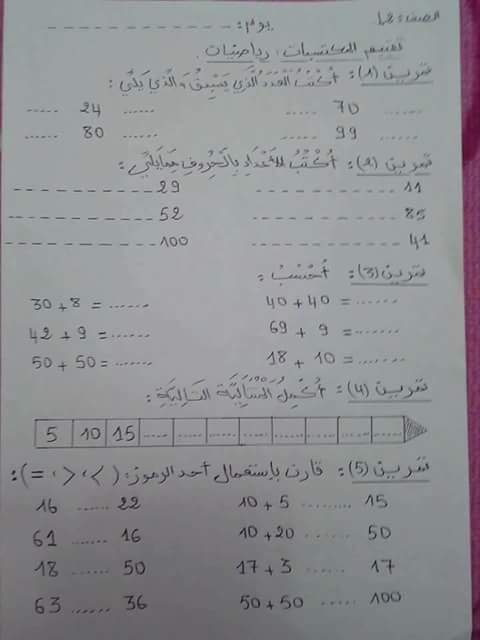 الصف: 1.2
يوم: ----------------
تقييم المكتسبات: رياضيات.
تمرين (1): أَكْتُبُ الْعَدَدَ الَّذِي يَسْبِقُ وَ الَّذِي يَلِي :
...... 70 ..... ...... 24 .....
...... 99 ..... ...... 80 .....
تمرين (2): أَكْتُبُ الأَعْدَادَ بِالْحُرُوفِ مِمَّايَلِي :
11 ---------------- 29 ----------------
85 ---------------- 52 ----------------
41 ---------------- 100 ----------------
تمرين (3): أَحْسُبُ :
40 + 40 = ....... 30 + 8 = .......
69 + 9 = ....... 42 + 9 = .......
18 + 10 = ....... 50 + 50 = .......
تمرين (4): أُكْمِلُ الْمُتَتَالِيَّةَ التَّالِيَةَ :
5 10 15 .... .... .... .... .... .... .... ....
تمرين (5): قارن بإستعمال أحد الرموز: (< ، > ، =) :
16 ...... 22 10 + 5 ......... 15
61 ....... 16 10 + 20 ....... 50
18 ....... 50 17 + 3 ...... 17
63 ...... 36 50 + 50 ...... 100